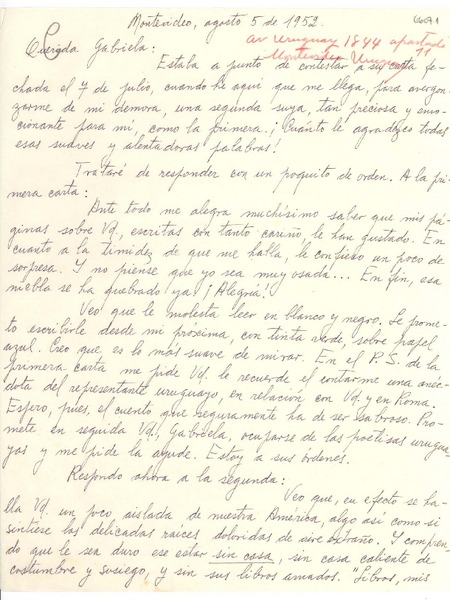 Montevideo, agosto 5 de 1952.
Querida Gabriela:
av Uruguay 1844 apartado 11
Montevideo Uruguay
Estaba a punto de contestar a su carta fe-
chada el 7 de julio, cuando he aquí que me llega, para avergon-
zarme de mi demora, una segunda suya, tan preciosa y emo-
cionante para mí, como la primera. ¡Cuánto le agradezco todas
esas suaves y alentadoras palabras!
Trataré de responder con un poquito de orden. A la pri-
mera carta:
Ante todo me alegra muchísimo saber que mis pá-
ginas sobre Vd., escritas con tanto cariño, le han gustado. En
cuanto a la timidez de que me habla, le confieso un poco de
sorpresa. Y no piense que yo sea muy osada... En fin, esa
niebla se ha quebrado ya. ¡Alegría!
Veo que le molesta leer en blanco y negro. Le prome-
to escribirle desde mi próxima, con tinta verde, sobre papel
azul. Creo que es lo más suave de mirar. En el P.S. de la
primera carta me pide Vd. le recuerde el contarme una anéc-
dota del representante uruguayo, en relación con Vd. y en Roma.
Espero, pues, el cuento que seguramente ha de ser sabroso. Pro-
mete en seguida Vd., Gabriela, ocuparse de las poetisas urugua-
yas y me pide la ayude. Estoy a sus órdenes.
Respondo ahora a la segunda:
Veo que, en efecto se ha-
lla Vd. un poco aislada de nuestra América, algo así como si
sintiese las delicadas raíces doloridas de aire extraño. Y compren-
do que le sea duro ese estar sin casa, sin casa caliente de
costumbre y sosiego, y sin sus libros amados. "Libros, mis